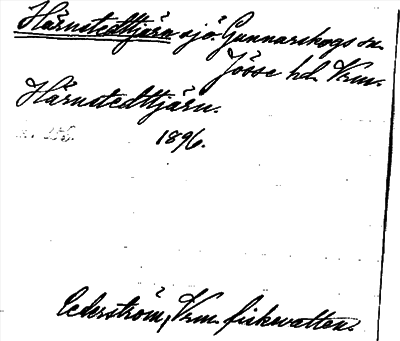 Härnstedttjärn sjö Gunnarskogs sn.
Jösse hd. Vrm.
Härnstedttjärn.
1896.
Cederström, Vrm. fiskevatten.